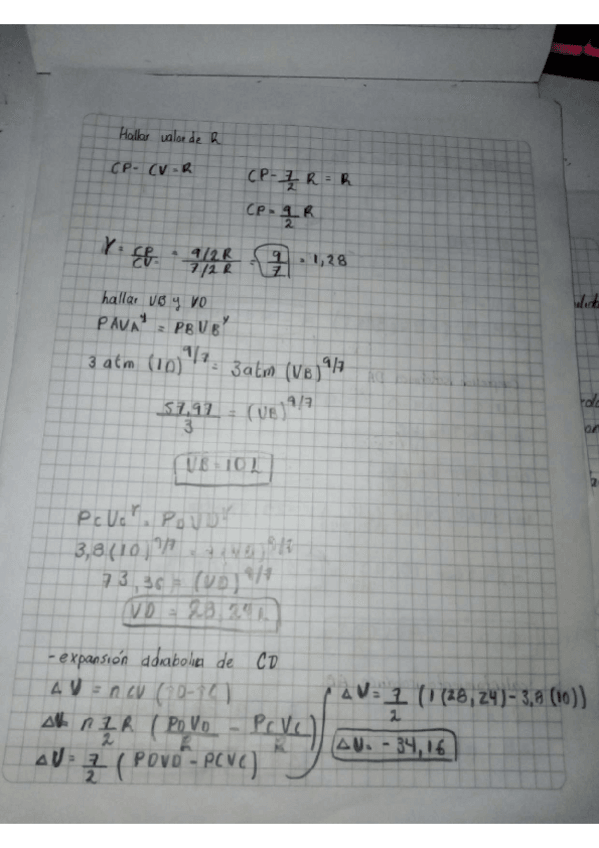 Hallar valor de R
CP - CV = R
CP - 7/2 R = R
CP = 9/2 R
γ = CP/CV = (9/2 R)/(7/2 R) = 9/7 = 1,28
hallar VB y VD
PAVA^γ = PBVB^γ
3 atm (10)^9/7 = 3 atm (VB)^9/7
57,97/3 = (VB)^9/7
VB = 10 L
PcVc^γ = PDVD^γ
3,8 (10)^9/7
73,36 = (VD)^9/7
VD = 28,24 L
- expansión adiabolia de CD
ΔU = n CV
ΔU n 7/2 R (PDVD/R - PcVc/R)
ΔU = 7/2 (PDVD - PCVC)
ΔU = 7/2 (1 (28,24) - 3,8 (10))
ΔU = - 34,16